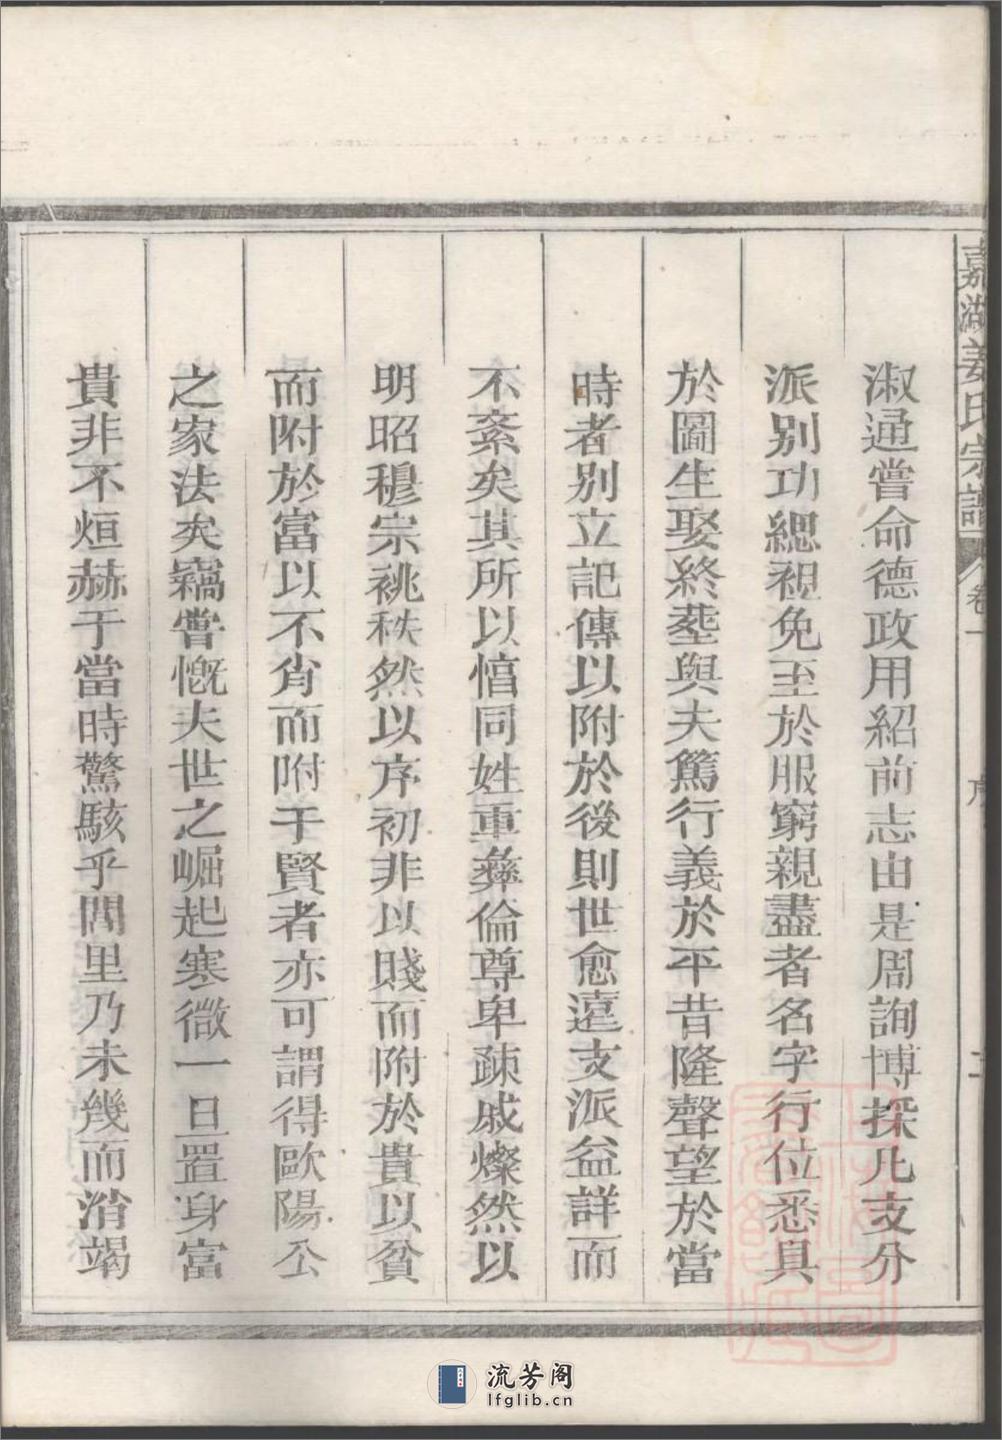 嘉湖姜氏宗譜 卷一 序 二
淑通嘗命德政用紹前志由是周詢博採凡支分
派别功緦袒免至於服窮親盡者名字行位悉具
於圖生娶終塟與夫篤行義於平昔隆聲望於當
時者别立記傳以附於後則世愈遠支派益詳而
不紊矣其所以惇同姓重彝倫尊卑疎戚燦然以
明昭穆宗祧秩然以序初非以賤而附於貴以貧
而附於富以不肖而附于賢者亦可謂得歐陽公
之家法矣竊嘗慨夫世之崛起寒微一旦置身富
貴非不烜赫于當時驚駭乎閭里乃未幾而消竭
流芳阁
lfglib.cn